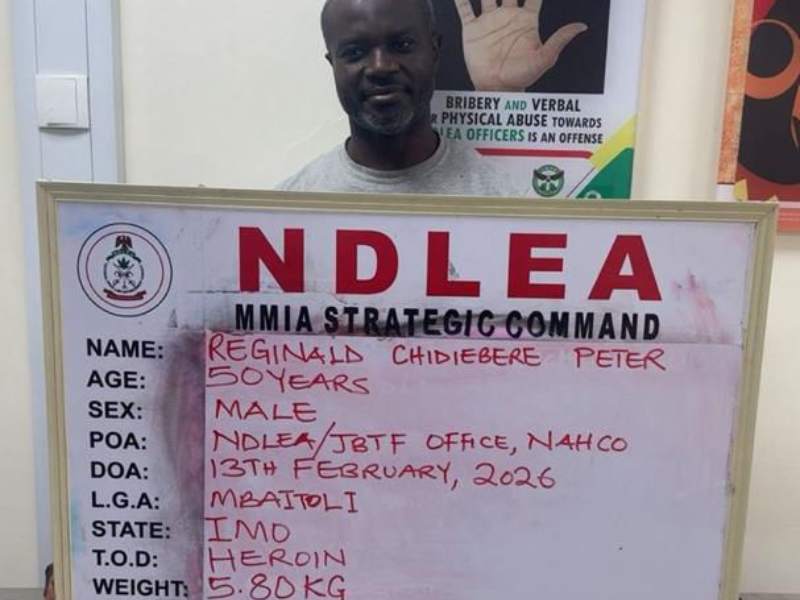 BRIBERY AND VERBAL
R PHYSICAL ABUSE TOWARDS
LEA OFFICERS IS AN OFFENSE
NDLEA
MMIA STRATEGIC COMMAND
NAME: REGINALD CHIDIEBERE PETER
AGE: 50 YEARS
SEX: MALE
POA: NDLEA/JBTF OFFICE, NAHCO
DOA: 13TH FEBRUARY, 2026
L.G.A: MBAITOLI
STATE: IMO
T.O.D: HEROIN
WEIGHT: 5.80KG